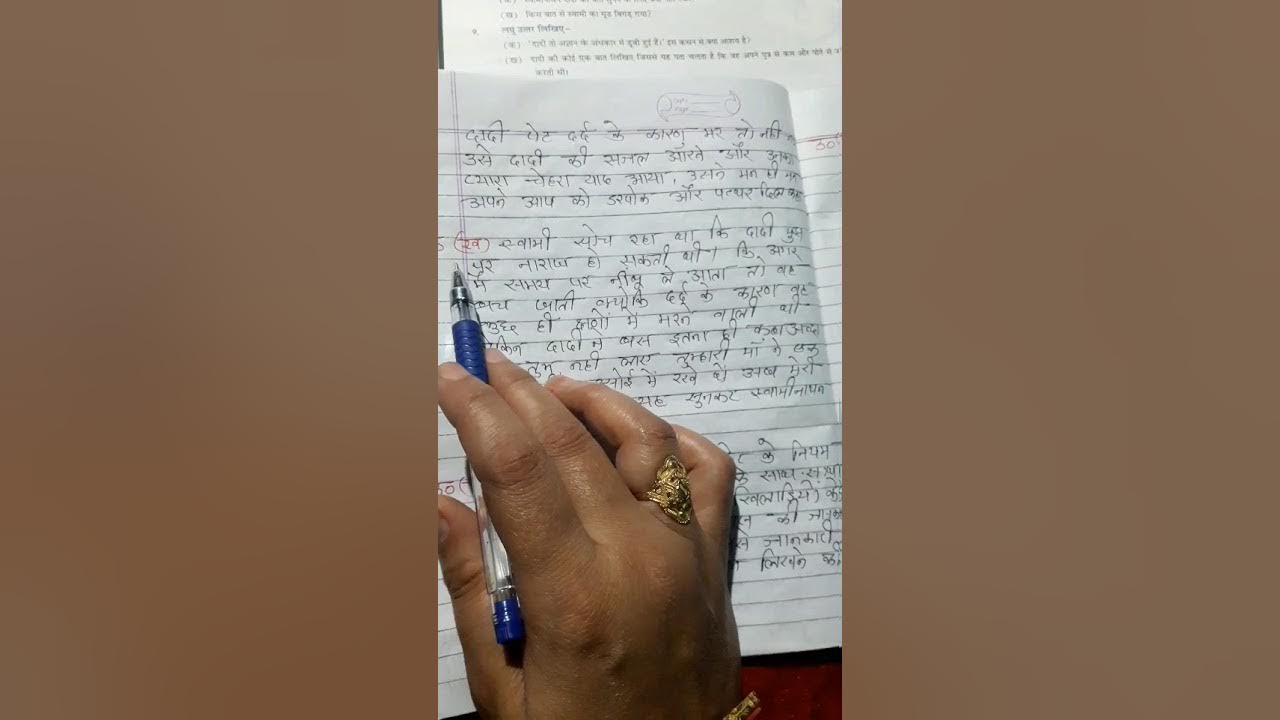 (ख) किस बात से स्वामी का मूड बिगड़ गया?
९. लघु उत्तर लिखिए–
(क) 'दादी तो अज्ञान के अंधकार में डूबी हुई हैं।' इस कथन से क्या आशय है?
(ख) दादी की कोई एक बात लिखिए जिससे यह पता चलता है कि वह अपने पुत्र से कम और पोते से
करती थीं।
दादी पेट दर्द के कारण मर तो नहीं
उसे दादी की सजल आँखे और उनका
प्यारा चेहरा याद आया, उसने मन ही मन
अपने आप को डरपोक और पत्थर दिल कहा
(ख) स्वामी सोच रहा था कि दादी मुझ
पर नाराज हो सकती थी। कि अगर
मैं समय पर नींबू ले आता तो वह
बच जाती क्योंकि दर्द के कारण वह
कुछ ही क्षणों में मरने वाली थी
लेकिन दादी ने बस इतना ही कहा अच्छा
तुम नहीं लाए तुम्हारी माँ ने
रसोई में रखे थे अब मेरी
यह सुनकर स्वामीनाथन
के नियम
के साथ
(खिलाड़ियों)
की
जानकारी
लिखने की